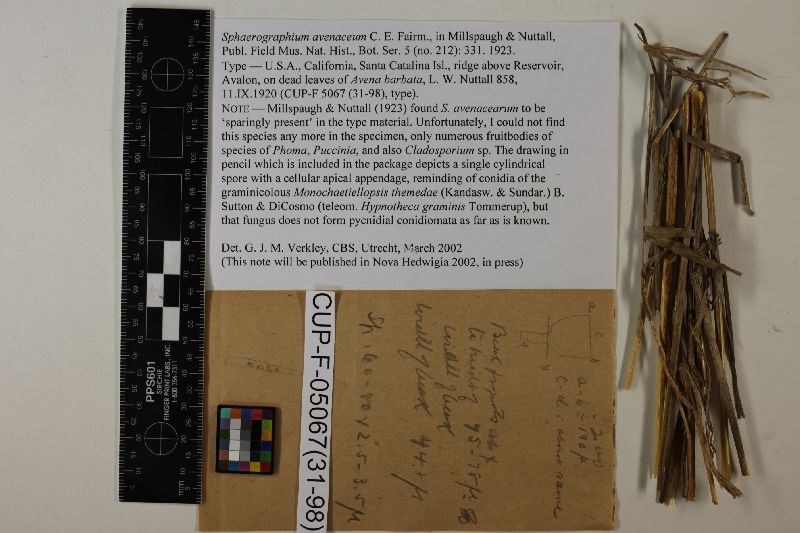 Sphaerographium avenaceum C. E. Fairm., in Millspaugh & Nuttall,
Publ. Field Mus. Nat. Hist., Bot. Ser. 5 (no. 212): 331. 1923.
Type — U.S.A., California, Santa Catalina Isl., ridge above Reservoir,
Avalon, on dead leaves of Avena barbata, L. W. Nuttall 858,
11.IX.1920 (CUP-F 5067 (31-98), type).
NOTE — Millspaugh & Nuttall (1923) found S. avenacearum to be
‘sparingly present’ in the type material. Unfortunately, I could not find
this species any more in the specimen, only numerous fruitbodies of
species of Phoma, Puccinia, and also Cladosporium sp. The drawing in
pencil which is included in the package depicts a single cylindrical
spore with a cellular apical appendage, reminding of conidia of the
graminicolous Monochaetiellopsis themedae (Kandasw. & Sundar.) B.
Sutton & DiCosmo (teleom. Hypnotheca graminis Tommerup), but
that fungus does not form pycnidial conidiomata as far as is known.
Det. G. J. M. Verkley, CBS, Utrecht, March 2002
(This note will be published in Nova Hedwigia 2002, in press)
PPS601
SIRCHIE
FINGER PRINT LABS., INC.
1-800-356-7311
mm
CUP-F-05067(31-98)
a-b = 190 µ
c-d - same
95-78 µ
44.7 µ
Sp. 60-80 x 2.5-3.5 µ